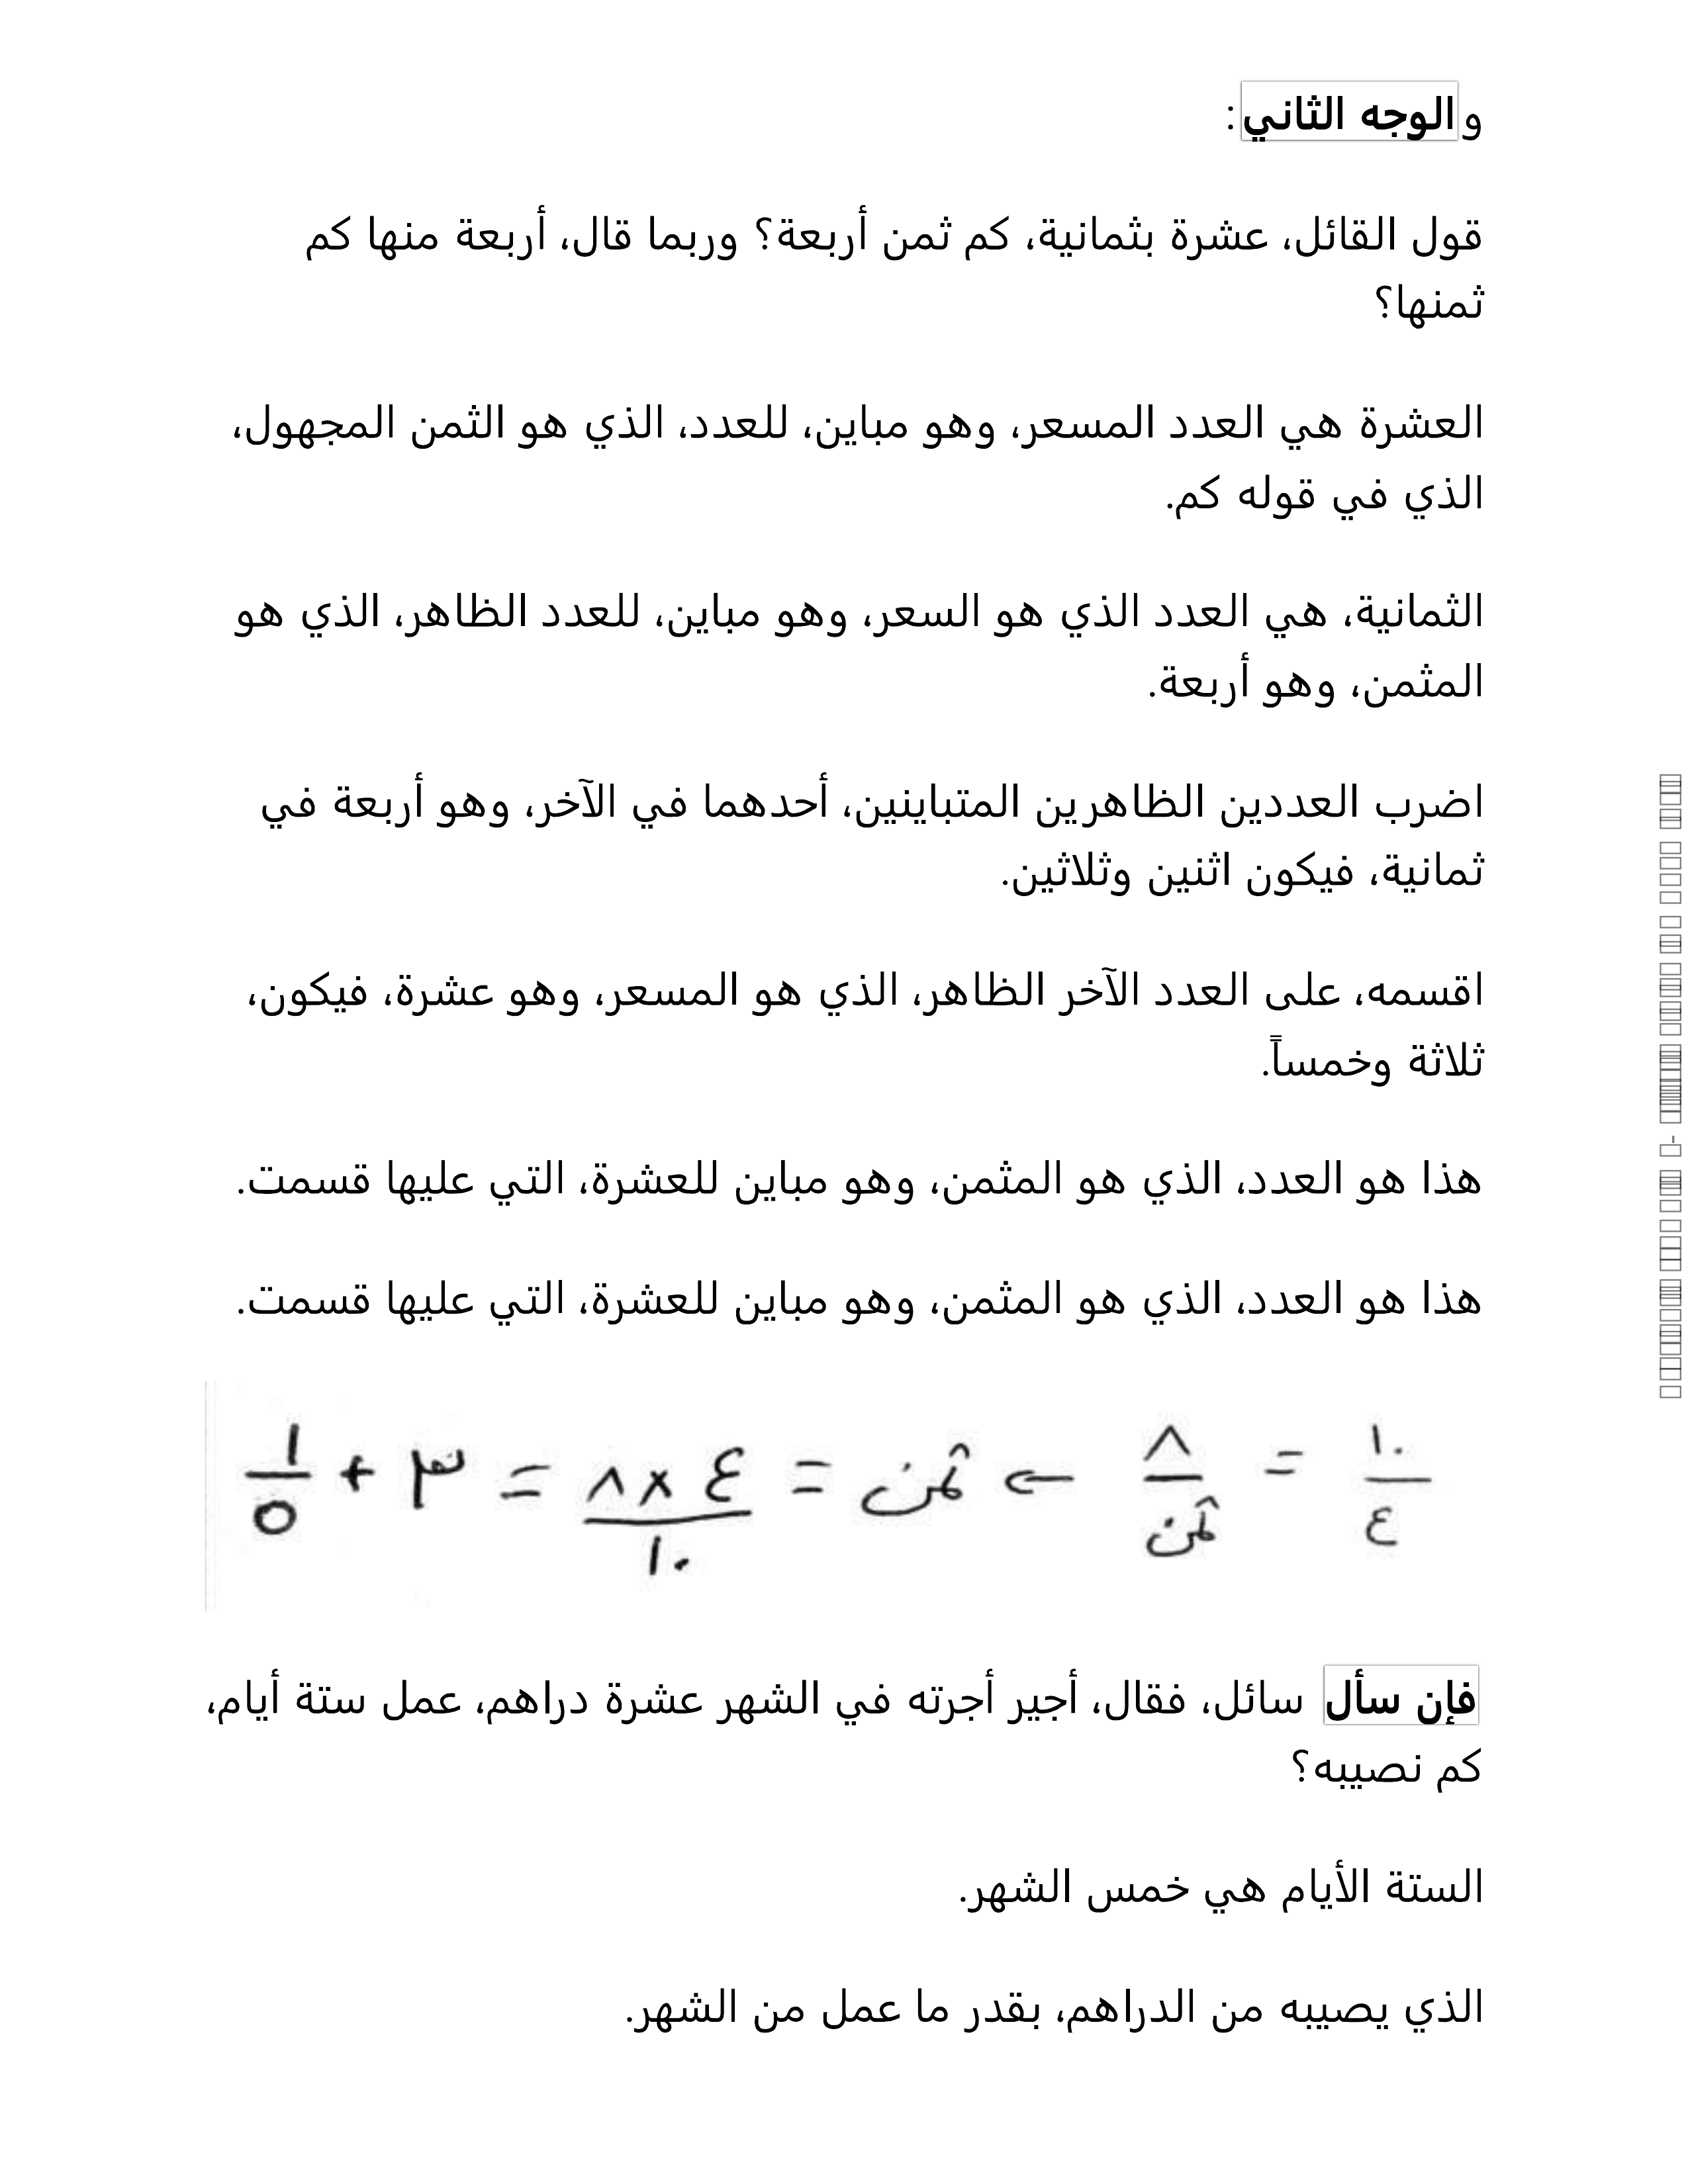 والوجه الثاني:
قول القائل، عشرة بثمانية، كم ثمن أربعة؟ وربما قال، أربعة منها كم
ثمنها؟
العشرة هي العدد المسعر، وهو مباين، للعدد، الذي هو الثمن المجهول،
الذي في قوله كم.
الثمانية، هي العدد الذي هو السعر، وهو مباين، للعدد الظاهر، الذي هو
المثمن، وهو أربعة.
اضرب العددين الظاهرين المتباينين، أحدهما في الآخر، وهو أربعة في
ثمانية، فيكون اثنين وثلاثين.
اقسمه، على العدد الآخر الظاهر، الذي هو المسعر، وهو عشرة، فيكون،
ثلاثة وخمساً.
هذا هو العدد، الذي هو المثمن، وهو مباين للعشرة، التي عليها قسمت.
هذا هو العدد، الذي هو المثمن، وهو مباين للعشرة، التي عليها قسمت.
١٠/٤ = ٨/ثمن ← ثمن = ٤×٨/١٠ = ٣ + ١/٥
فإن سأل سائل، فقال، أجير أجرته في الشهر عشرة دراهم، عمل ستة أيام،
كم نصيبه؟
الستة الأيام هي خمس الشهر.
الذي يصيبه من الدراهم، بقدر ما عمل من الشهر.